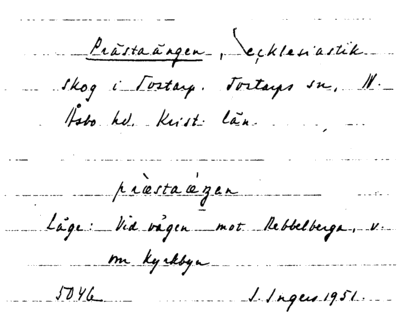 Prästaängen, ecklesiastik
skog i Tostarp. Tostarps sn, N.
Åsbo hd. Krist. län.
präs̀taǽŋen
Läge: Vid vägen mot Rebbelberga, v.
om Kyrkbyn
5046 I. Ingers 1951.